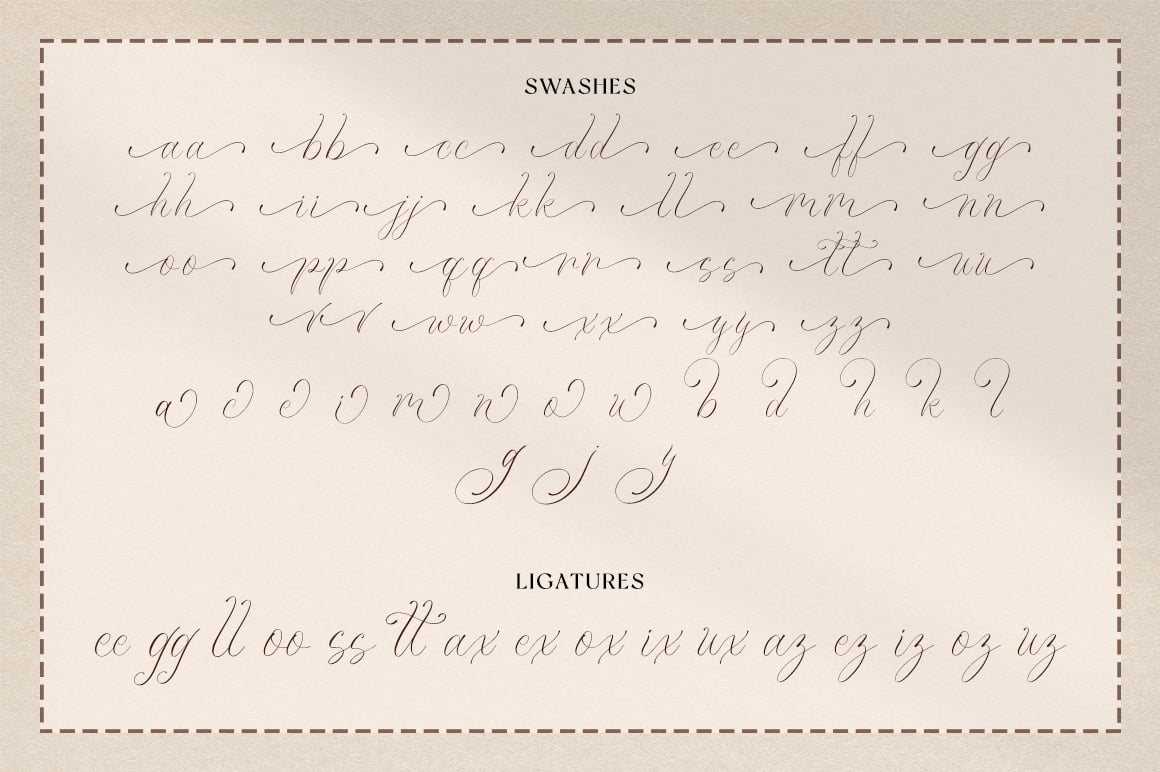 SWASHES
aa bb cc dd ee ff gg
hh ii jj kk ll mm nn
oo pp qq rr ss tt uu
vv ww xx yy zz
a c e i m n o u b d h k l
g j y
LIGATURES
ee gg ll oo ss tt ax ex ox ix ux az ez iz oz uz